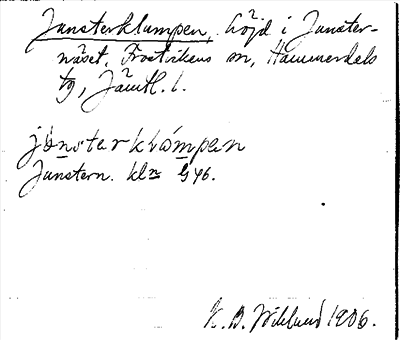 Junsterklumpen, höjd i Junster-
näset, Frostvikens sn, Hammerdals
tg, Jämtl. l.
jónsterklómpen
Junstern. kln G 46.
K. B. Wiklund 1906.